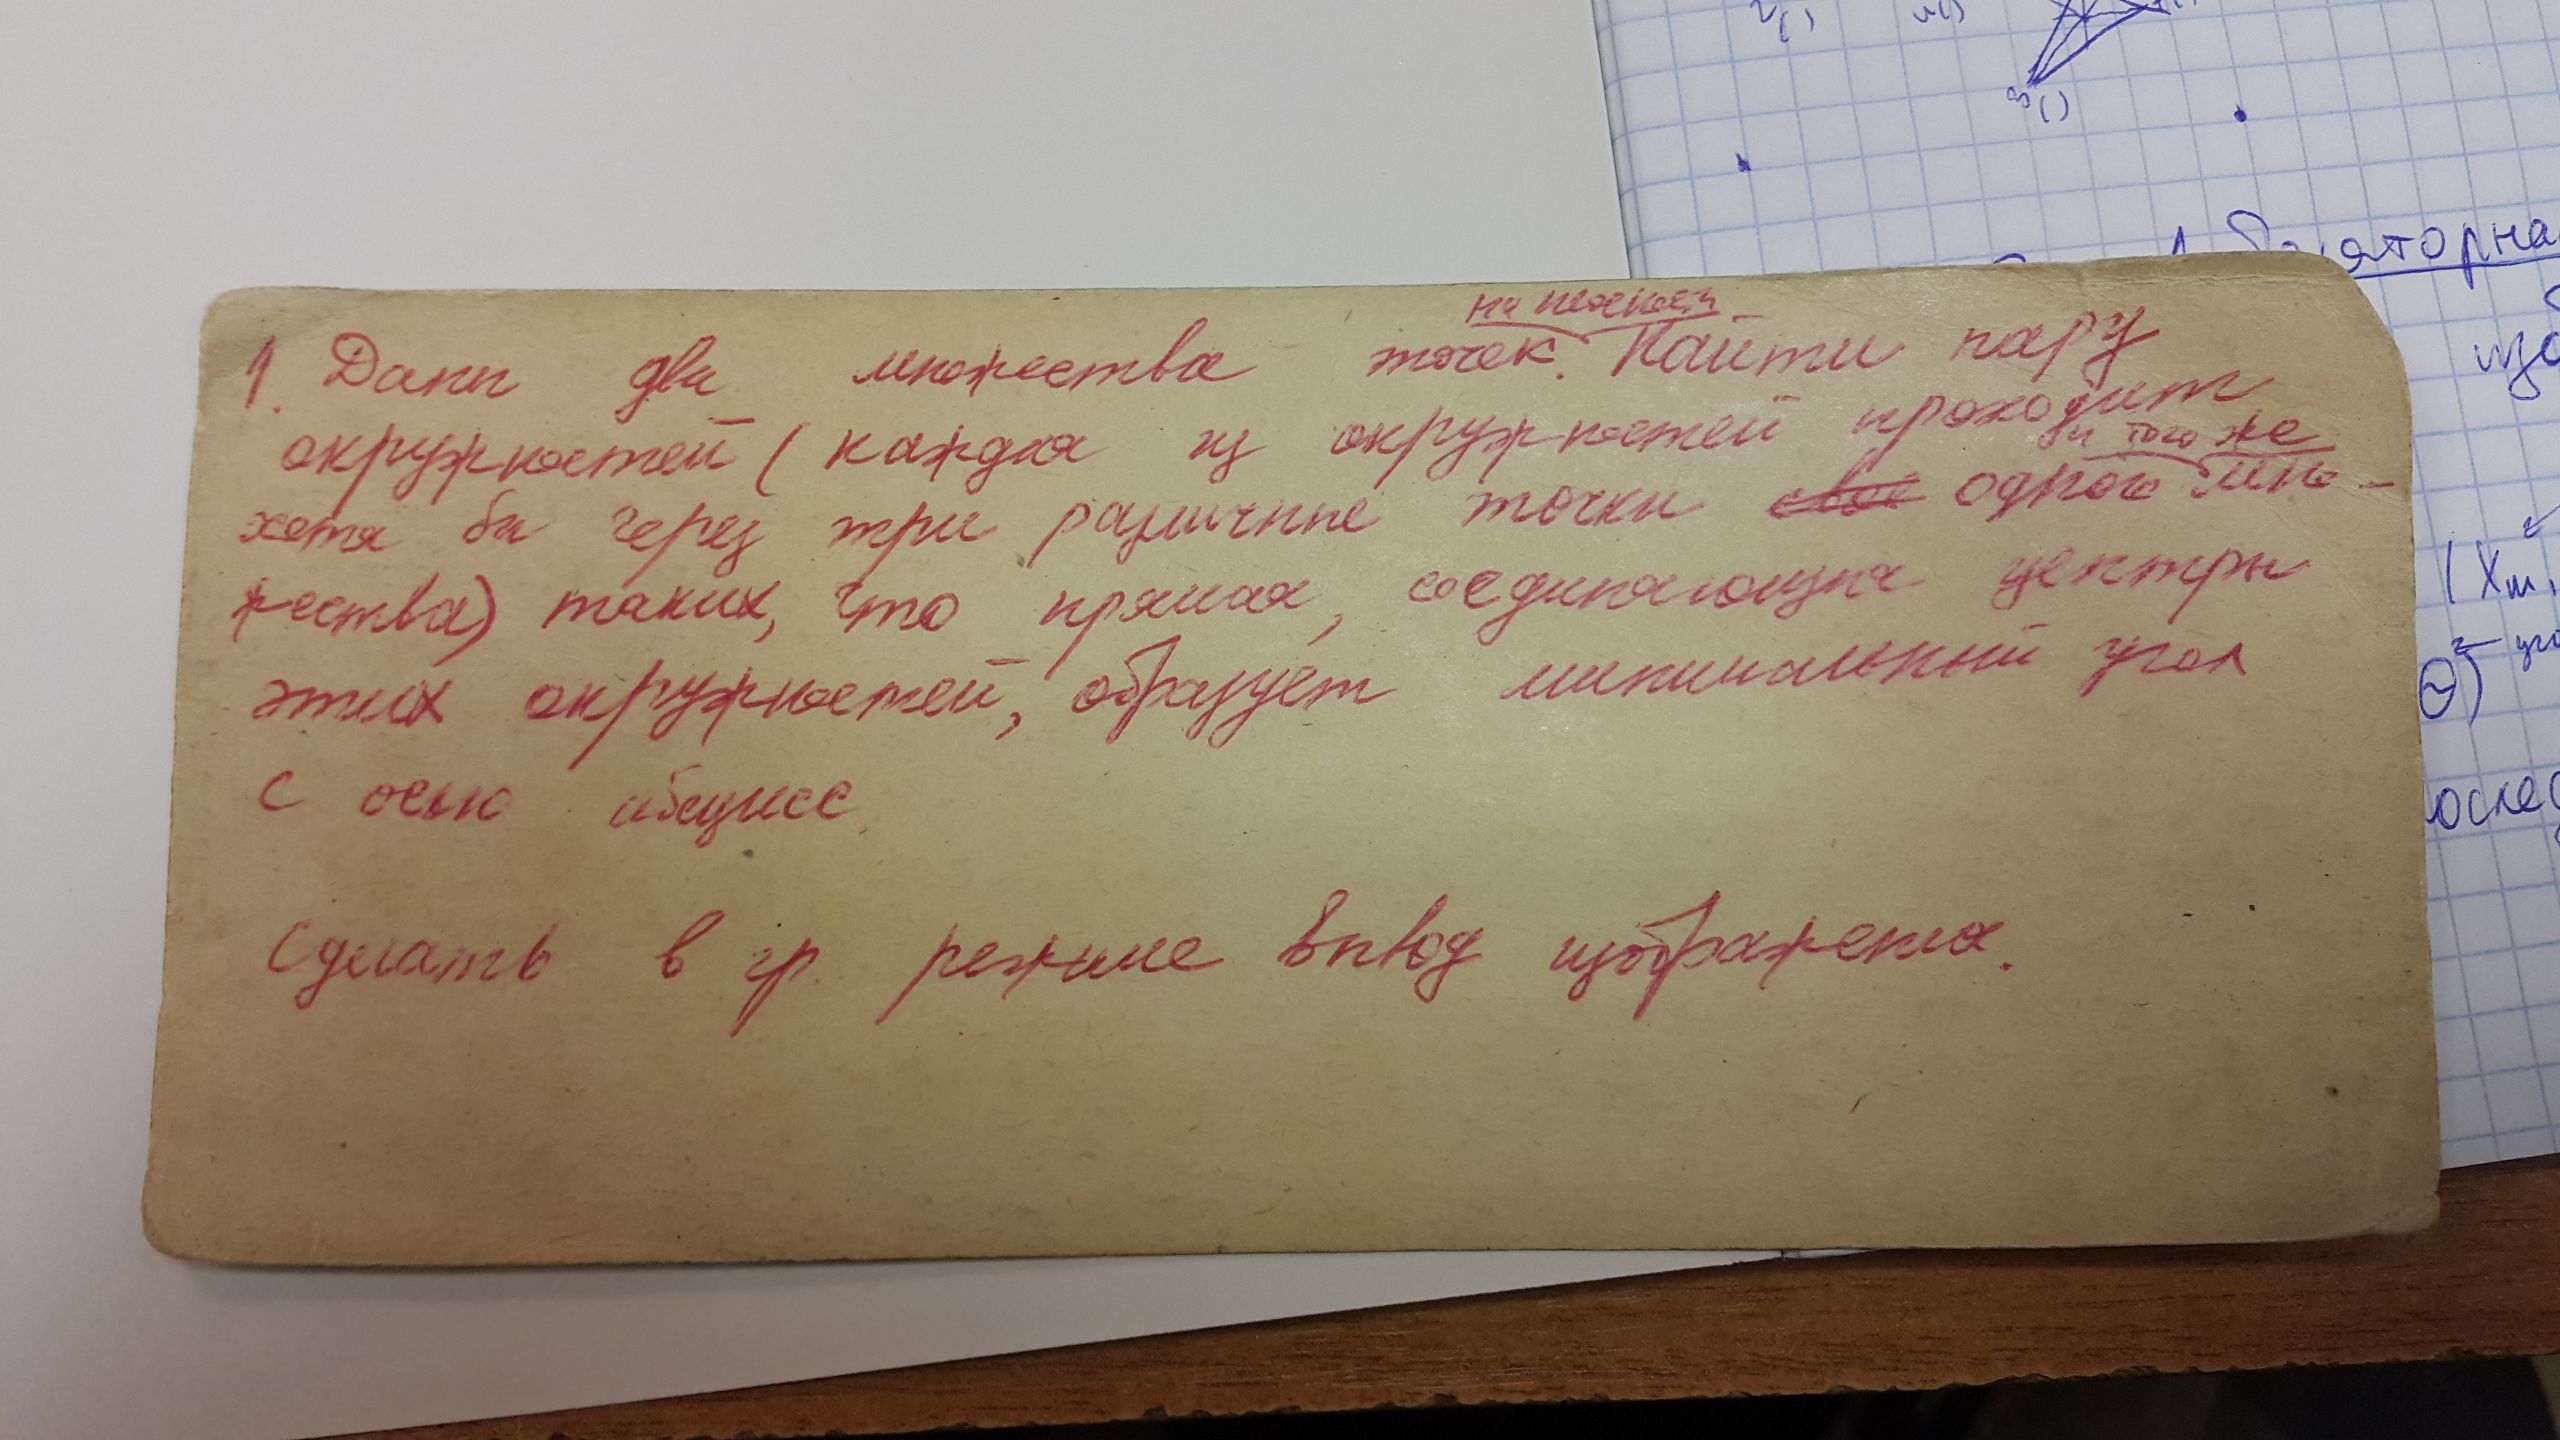 1. Даны два множества точек на плоскости. Найти пару
окружностей (каждая из окружностей проходит
хотя бы через три различные точки одного и того же мно-
жества) таких, что прямая, соединяющая центры
этих окружностей, образует минимальный угол
с осью абсцисс.
Сделать в гр. режиме вывод изображения.